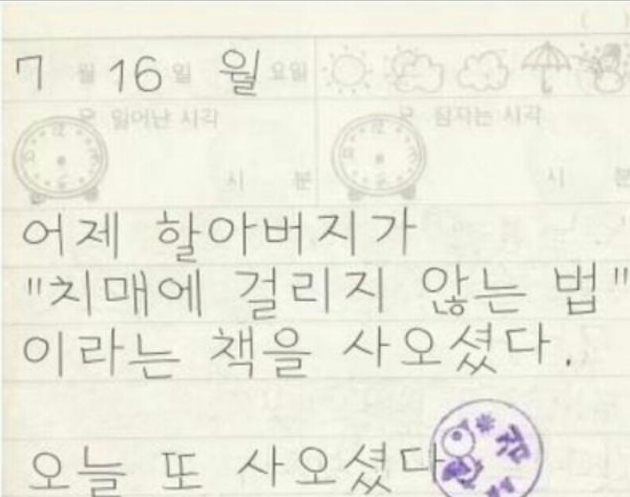 7 월 16 일 월 요일
일어난 시각 잠자는 시각
시 분 시 분
어제 할아버지가
"치매에 걸리지 않는 법"
이라는 책을 사오셨다.
오늘 또 사오셨다